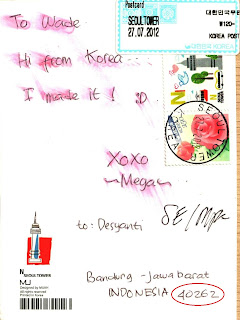 Postcard
SEOULTOWER
27.07.2012
대한민국우표
₩120
KOREA POST
To Wade
Hi from Korea...
I made it! :D
N
SEOUL TOWER
XoXo
~Mega~
to: Desyanti
SE/
Bandung - Jawa barat
INDONESIA 40262
N
SEOUL TOWER
MJ
Designed by MIZER
Printed in Korea